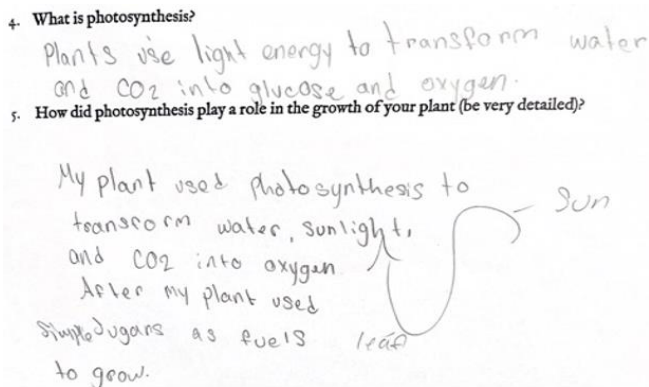 4. What is photosynthesis?
Plants use light energy to transform water
and CO2 into glucose and oxygen.
5. How did photosynthesis play a role in the growth of your plant (be very detailed)?
My plant used photosynthesis to
transform water, sunlight,
and CO2 into oxygen
After my plant used
simple sugars as fuels
to grow.
Sun
leaf